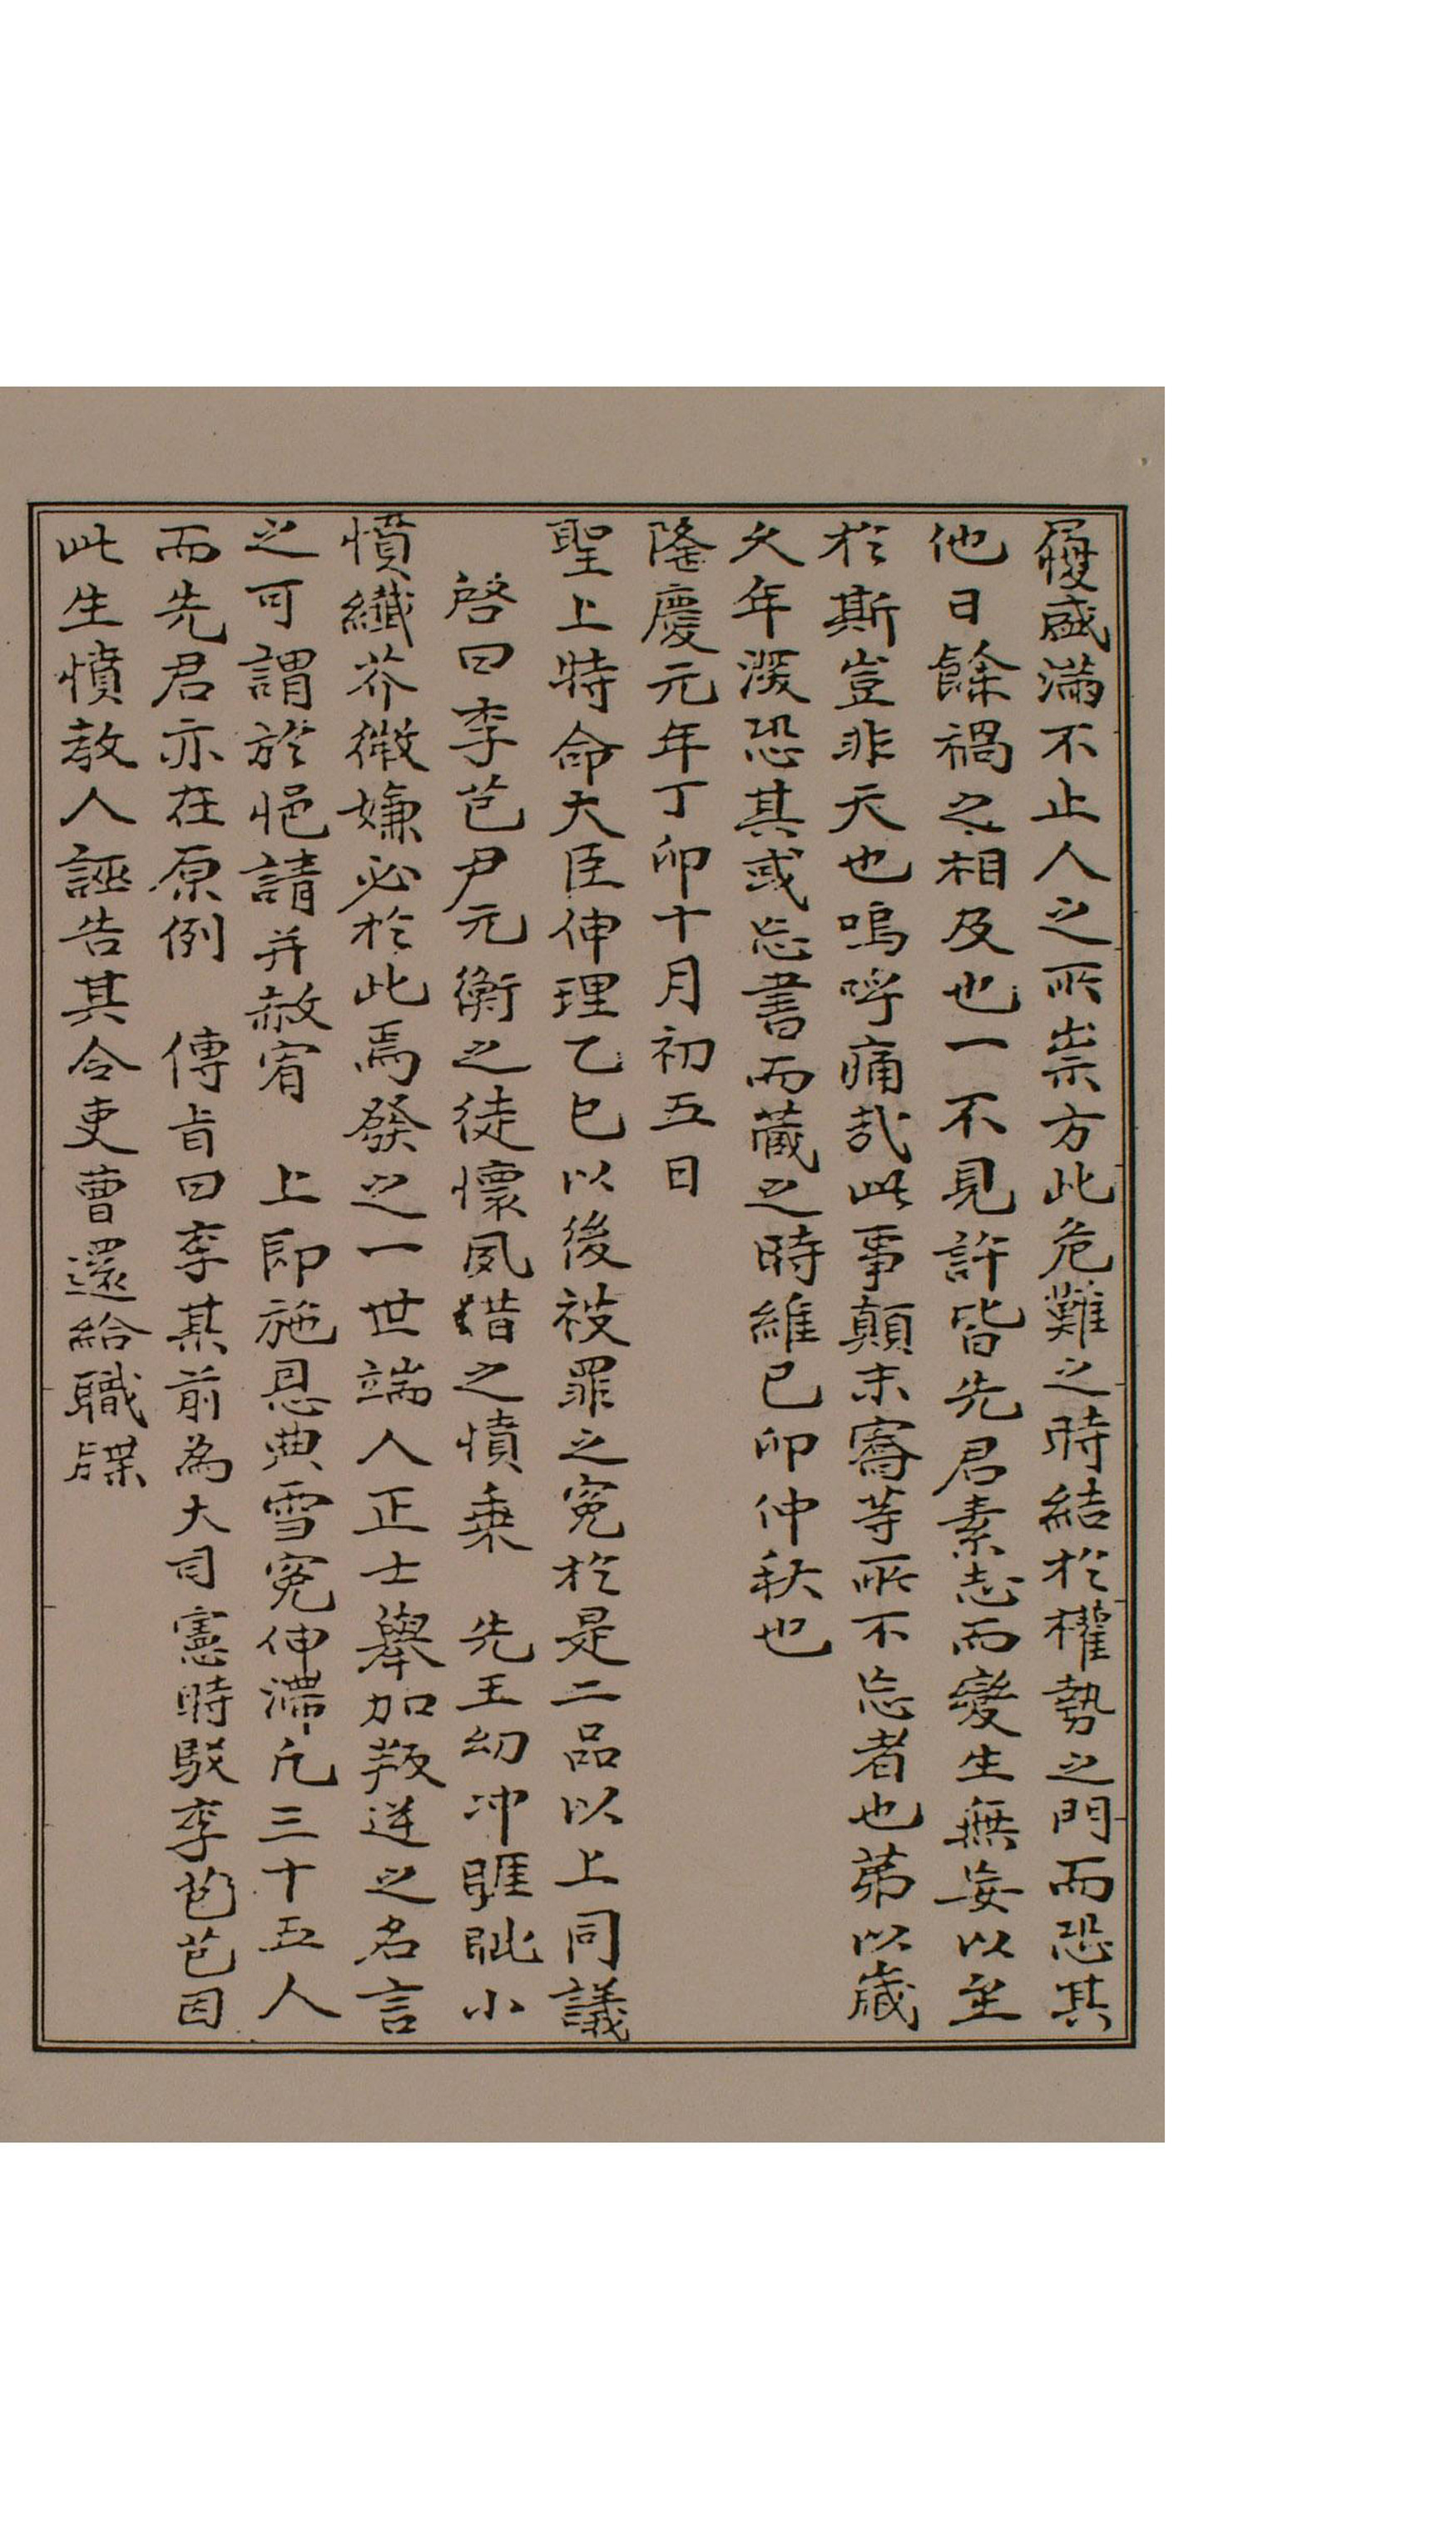 履盛滿不止人之所祟方此危難之時結於權勢之門而恐其
他日餘禍之相及也一不見許皆先君素志而變生無妄以至
於斯豈非天也嗚呼痛哉此事顛末騫等所不忘者也第以歲
久年深恐其或忘書而藏之時維己卯仲秋也
隆慶元年丁卯十月初五日
聖上特命大臣伸理乙巳以後被罪之冤於是二品以上同議
啓曰李芑尹元衡之徒懷夙昔之憤乗 先王幼冲睚眦小
憤纖芥微嫌必於此焉發之一世端人正士舉加叛逆之名言
之可謂於悒請并赦宥 上即施恩典雪冤伸滯凢三十五人
而先君亦在原例 傳旨曰李某前為大司憲時駁李芑芑因
此生憤教人誣告其令吏曹還給職牒